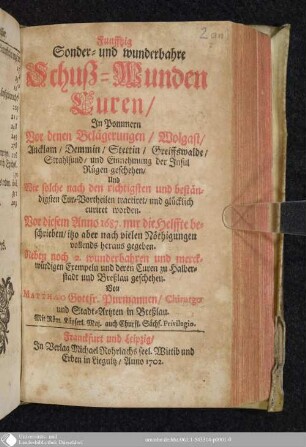 Funffzig
Sonder- und wunderbahre
Schuß-Wunden
Curen/
In Pommern
Vor denen Belägerungen/ Wolgast/
Ancklam/ Demmin/ Stettin/ Greiffswalde/
Strahlsund/ und Einnehmung der Insul
Rügen geschehen/
Und
Wie solche nach den richtigsten und bestän-
digsten Cur-Vortheilen tractiret/ und glücklich
curiret worden.
Vor diesem Anno 1687. nur die Helffte be-
schrieben/ itzo aber nach vielen Nöthigungen
vollends heraus gegeben.
Neben noch 2. wunderbahren und merck-
würdigen Exempeln und deren Curen zu Halber-
stadt und Breßlau geschehen.
Von
Matthäo Gottfr. Purmannen/ Chirurgo
und Stadt-Artzten in Breßlau.
Mit Röm. Käyserl. Maj. auch Churfl. Sächs. Privilegio.
Franckfurt und Leipzig/
In Verlag Michael Rohrlachs seel. Wittib und
Erben in Liegnitz/ Anno 1702.